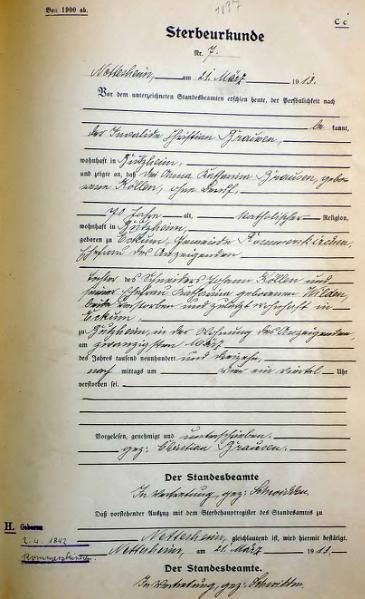 Bei 1900 ab.
C c
Sterbeurkunde
Nr. 7.
Nettesheim, am 21. März 1913.
Vor dem unterzeichneten Standesbeamten erschien heute, der Persönlichkeit nach
be kannt,
der Invalide Christian Brauven,
wohnhaft in Butzheim,
und zeigte an, daß die Anna Katharina Brauven, gebo-
rene Köllen, ohne Beruf,
70 Jahre alt, katholischer Religion,
wohnhaft in Butzheim,
geboren zu Eckum, Gemeinde Rommerskirchen,
Ehefrau des Anzeigenden
Tochter des Johann Köllen und
seiner Ehefrau Katharina geborenen
beide verstorben und zuletzt wohnhaft in
Eckum
zu Butzheim, in der Wohnung des Anzeigenden,
am zwanzigsten März
des Jahres tausend neunhundert und dreizehn,
nach mittags um ein viertel Uhr
verstorben sei.
Vorgelesen, genehmigt und unterschrieben.
gez: Christian Brauven.
Der Standesbeamte
In Vertretung, gez:
Daß vorstehender Auszug mit dem Sterbehauptregister des Standesamtes zu
Nettesheim, gleichlautend ist, wird hiermit bestätigt.
Nettesheim, am 21. März 1913.
Der Standesbeamte.
In Vertretung, gez:
H. Geboren
2. 4. 1842
Rommerskirchen